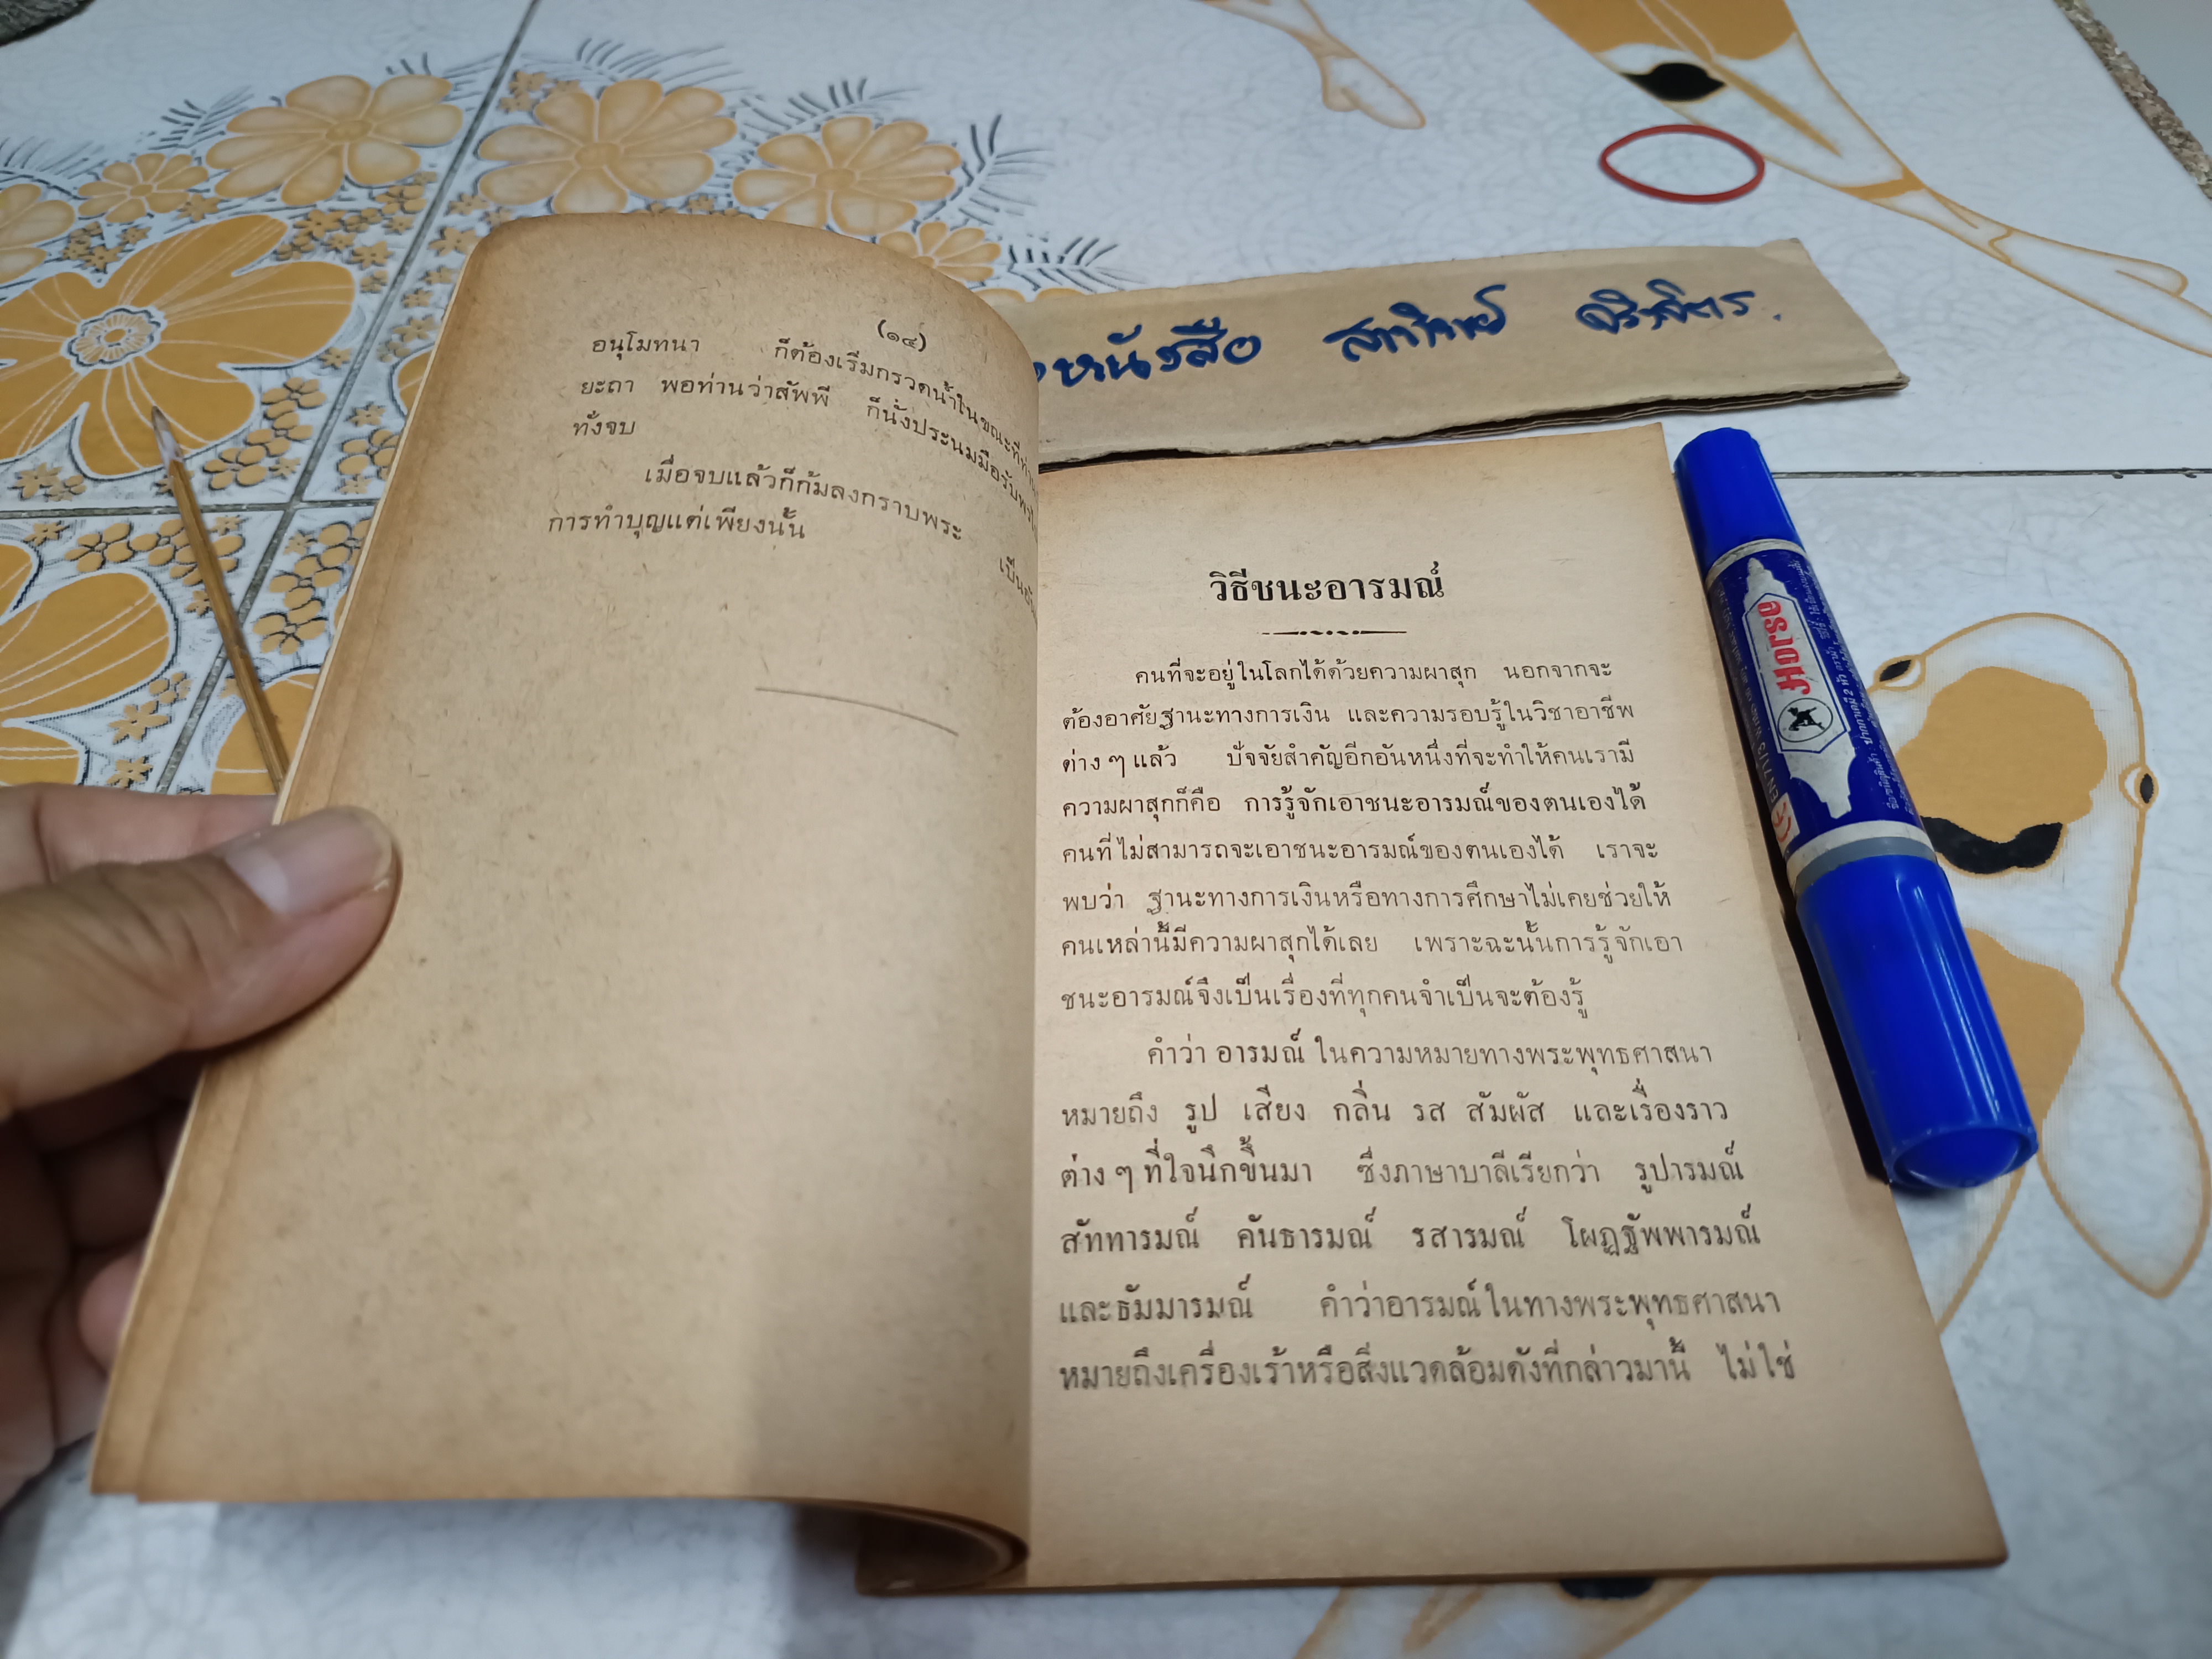 (๑๔)
อนุโมทนา ก็ต้องเริ่มกรวดน้ำในขณะที่
ยะถา พอท่านว่าสัพพี ก็นั่งประนมมือรับพร
ทั่งจบ
เมื่อจบแล้วก็ก้มลงกราบพระ
การทำบุญแต่เพียงนั้น
หนังสือ
วิธีชนะอารมณ์
คนที่จะอยู่ในโลกได้ด้วยความผาสุก นอกจากจะ
ต้องอาศัยฐานะทางการเงิน และความรอบรู้ในวิชาอาชีพ
ต่าง ๆ แล้ว ปัจจัยสำคัญอีกอันหนึ่งที่จะทำให้คนเรามี
ความผาสุกก็คือ การรู้จักเอาชนะอารมณ์ของตนเองได้
คนที่ไม่สามารถจะเอาชนะอารมณ์ของตนเองได้ เราจะ
พบว่า ฐานะทางการเงินหรือทางการศึกษาไม่เคยช่วยให้
คนเหล่านี้มีความผาสุกได้เลย เพราะฉะนั้นการรู้จักเอา
ชนะอารมณ์จึงเป็นเรื่องที่ทุกคนจำเป็นจะต้องรู้
คำว่า อารมณ์ ในความหมายทางพระพุทธศาสนา
หมายถึง รูป เสียง กลิ่น รส สัมผัส และเรื่องราว
ต่าง ๆ ที่ใจนึกขึ้นมา ซึ่งภาษาบาลีเรียกว่า รูปารมณ์
สัททารมณ์ คันธารมณ์ รสารมณ์ โผฏฐัพพารมณ์
และธัมมารมณ์ คำว่าอารมณ์ในทางพระพุทธศาสนา
หมายถึงเครื่องเร้าหรือสิ่งแวดล้อมดังที่กล่าวมานี้ ไม่ใช่
Horse